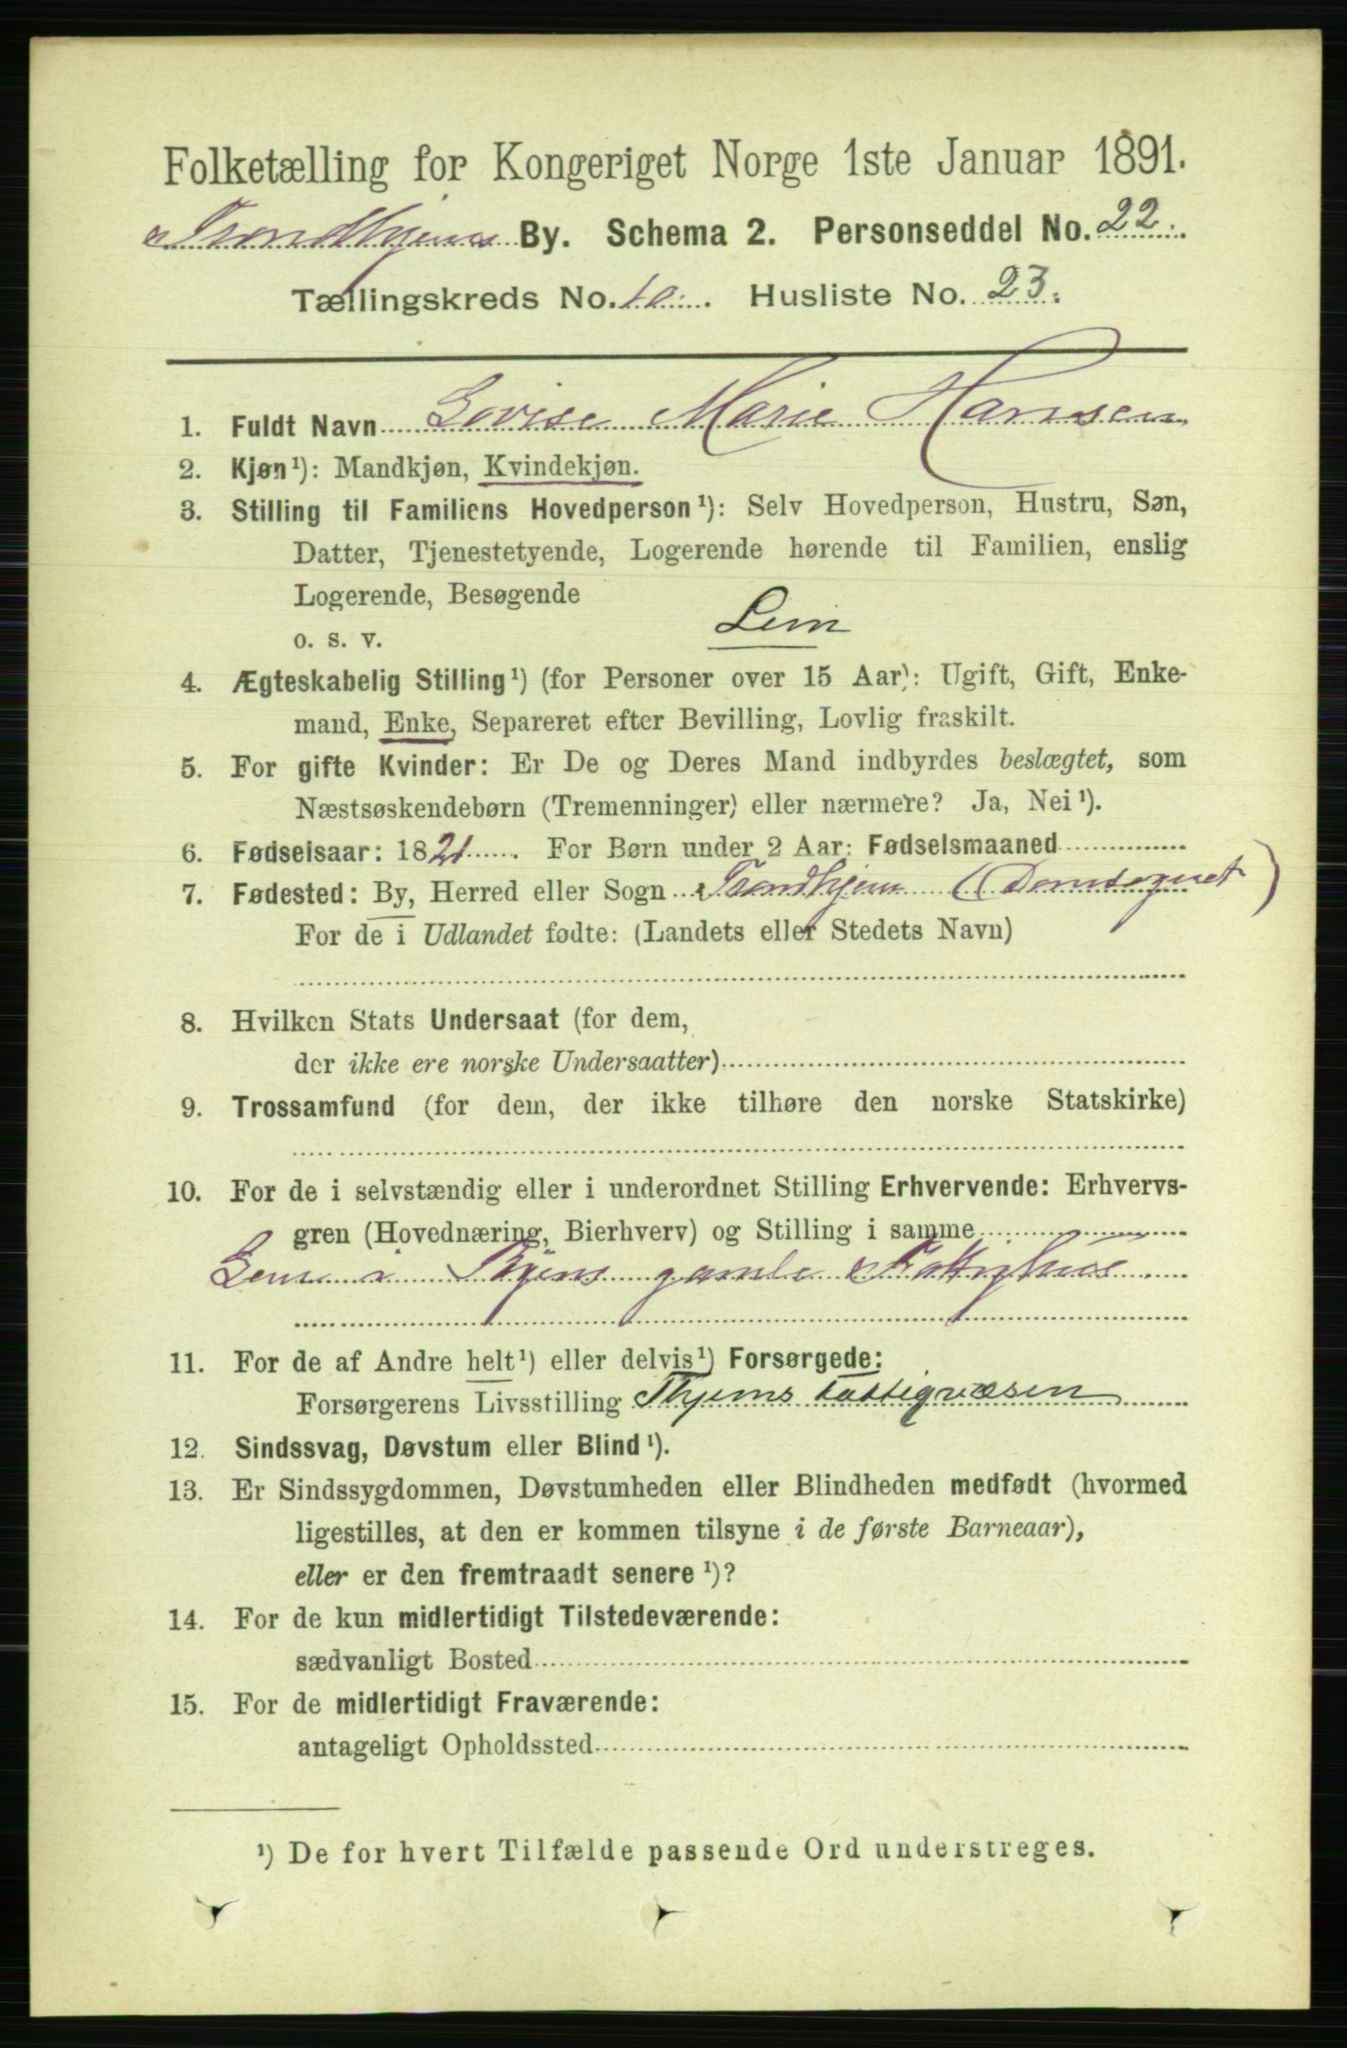 Folketælling for Kongeriget Norge 1ste Januar 1891.
Trondhjems By. Schema 2. Personseddel No. 22.
Tællingskreds No. 10. Husliste No. 23.
1. Fuldt Navn Lovise Marie Hansen
2. Kjøn ¹): Mandkjøn, Kvindekjøn.
3. Stilling til Familiens Hovedperson ¹): Selv Hovedperson, Hustru, Søn,
Datter, Tjenestetyende, Logerende hørende til Familien, enslig
Logerende, Besøgende
o. s. v. Lem
4. Ægteskabelig Stilling ¹) (for Personer over 15 Aar): Ugift, Gift, Enke-
mand, Enke, Separeret efter Bevilling, Lovlig fraskilt.
5. For gifte Kvinder: Er De og Deres Mand indbyrdes beslægtet, som
Næstsøskendebørn (Tremenninger) eller nærmere? Ja, Nei ¹).
6. Fødselsaar: 1821. For Børn under 2 Aar: Fødselsmaaned
7. Fødested: By, Herred eller Sogn Trondhjem (Domsognet)
For de i Udlandet fødte: (Landets eller Stedets Navn)
8. Hvilken Stats Undersaat (for dem,
der ikke ere norske Undersaatter)
9. Trossamfund (for dem, der ikke tilhøre den norske Statskirke)
10. For de i selvstændig eller i underordnet Stilling Erhvervende: Erhvervs-
gren (Hovednæring, Bierhverv) og Stilling i samme
Lem i Byens gamle Fattighus.
11. For de af Andre helt ¹) eller delvis ¹) Forsørgede:
Forsørgerens Livsstilling Thjems Fattigvæsen
12. Sindssvag, Døvstum eller Blind ¹).
13. Er Sindssygdommen, Døvstumheden eller Blindheden medfødt (hvormed
ligestilles, at den er kommen tilsyne i de første Barneaar),
eller er den fremtraadt senere ¹)?
14. For de kun midlertidigt Tilstedeværende:
sædvanligt Bosted
15. For de midlertidigt Fraværende:
antageligt Opholdssted
¹) De for hvert Tilfælde passende Ord understreges.